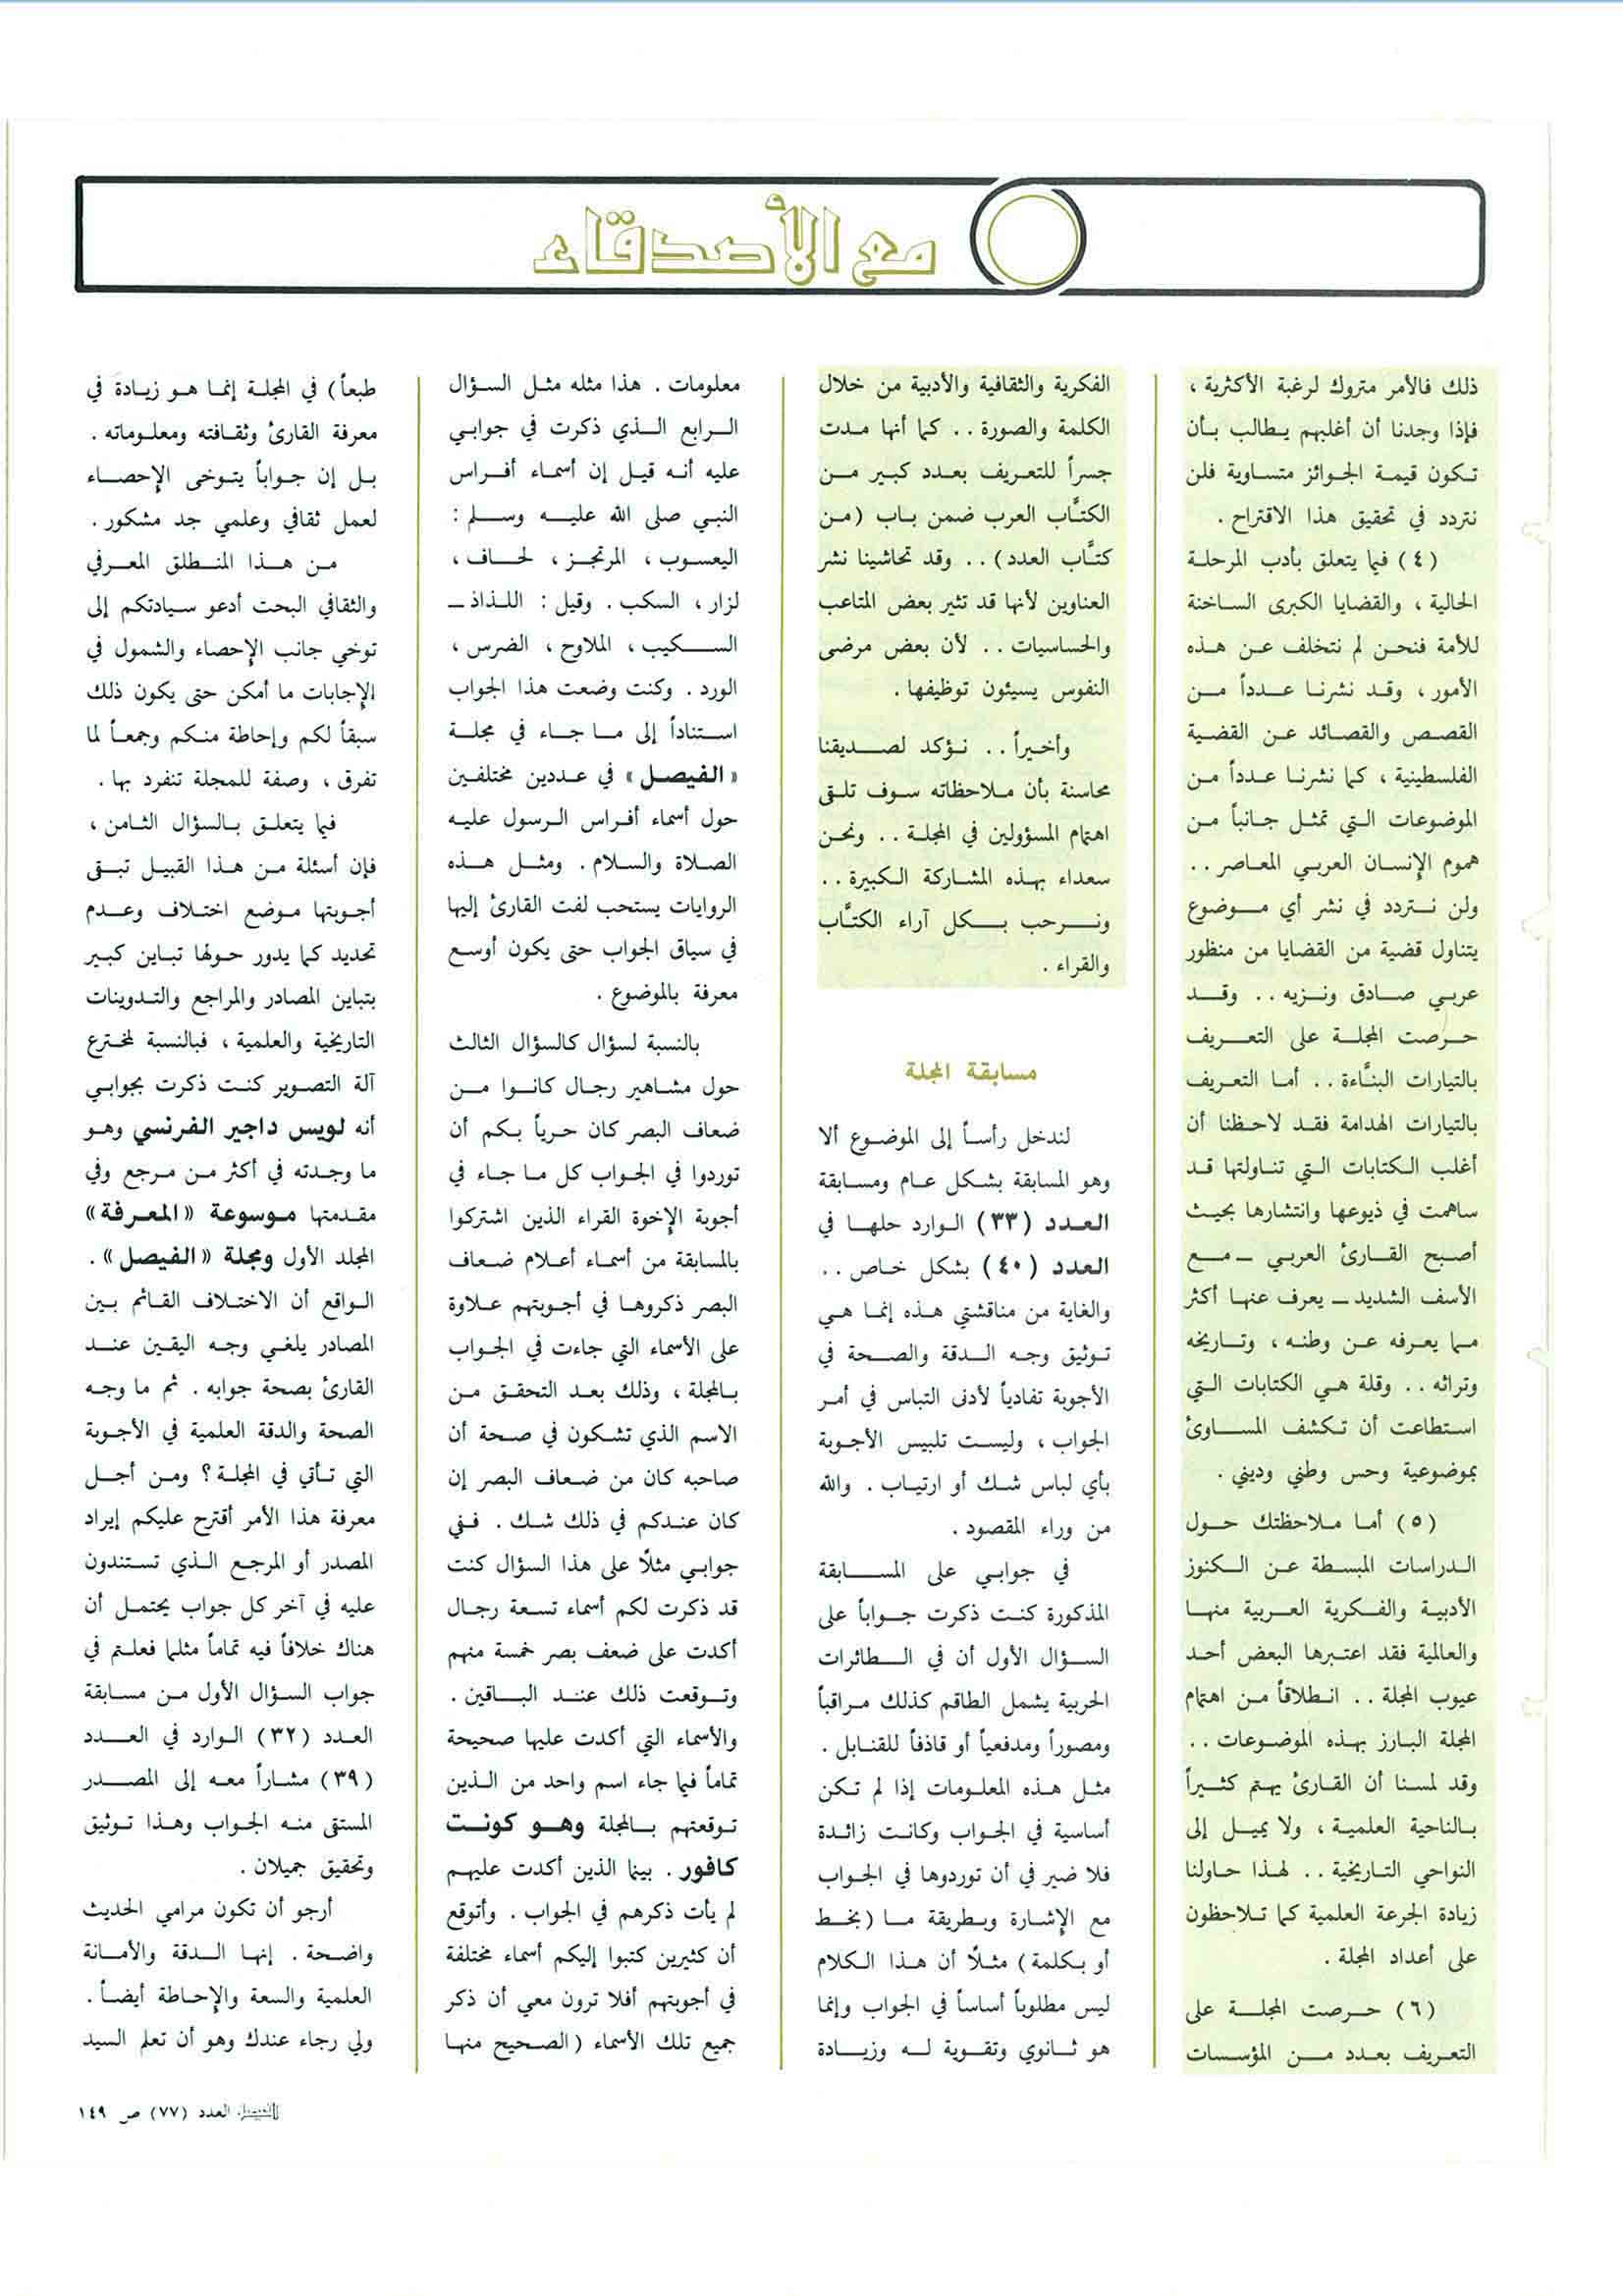 مع الأصدقاء
ذلك فالأمر متروك لرغبة الأكثرية ،
فإذا وجدنا أن أغلبهم يطالب بأن
تكون قيمة الجوائز متساوية فلن
نتردد في تحقيق هذا الاقتراح .
(٤) فيما يتعلق بأدب المرحلة
الحالية ، والقضايا الكبرى الساخنة
للأمة فنحن لم نتخلف عن هذه
الأمور ، وقد نشرنا عدداً من
القصص والقصائد عن القضية
الفلسطينية ، كما نشرنا عدداً من
الموضوعات التي تمثل جانباً من
هموم الإنسان العربي المعاصر ..
ولن نتردد في نشر أي موضوع
يتناول قضية من القضايا من منظور
عربي صادق ونزيه .. وقد
حرصت المجلة على التعريف
بالتيارات البنَّاءة .. أما التعريف
بالتيارات الهدامة فقد لاحظنا أن
أغلب الكتابات التي تناولتها قد
ساهمت في ذيوعها وانتشارها بحيث
أصبح القارئ العربي ــ مع
الأسف الشديد ــ يعرف عنها أكثر
مما يعرفه عن وطنه ، وتاريخه
وتراثه .. وقلة هي الكتابات التي
استطاعت أن تكشف المساوئ
بموضوعية وحس وطني وديني .
(٥) أما ملاحظتك حول
الدراسات المبسطة عن الكنوز
الأدبية والفكرية العربية منها
والعالمية فقد اعتبرها البعض أحد
عيوب المجلة .. انطلاقاً من اهتمام
المجلة البارز بهذه الموضوعات ..
وقد لمسنا أن القارئ يهتم كثيراً
بالناحية العلمية ، ولا يميل إلى
النواحي التاريخية .. لهذا حاولنا
زيادة الجرعة العلمية كما تلاحظون
على أعداد المجلة .
(٦) حرصت المجلة على
التعريف بعدد من المؤسسات
الفكرية والثقافية والأدبية من خلال
الكلمة والصورة .. كما أنها مدت
جسراً للتعريف بعدد كبير من
الكتَّاب العرب ضمن باب (من
كتَّاب العدد) .. وقد تحاشينا نشر
العناوين لأنها قد تثير بعض المتاعب
والحساسيات .. لأن بعض مرضى
النفوس يسيئون توظيفها .
وأخيراً .. نؤكد لصديقنا
محاسنة بأن ملاحظاته سوف تلقى
اهتمام المسؤولين في المجلة .. ونحن
سعداء بهذه المشاركة الكبيرة ..
ونرحب بكل آراء الكتَّاب
والقراء .
مسابقة المجلة
لندخل رأساً إلى الموضوع ألا
وهو المسابقة بشكل عام ومسابقة
العدد (٣٣) الوارد حلها في
العدد (٤٠) بشكل خاص ..
والغاية من مناقشتي هذه إنما هي
توثيق وجه الدقة والصحة في
الأجوبة تفادياً لأدنى التباس في أمر
الجواب ، وليست تلبيس الأجوبة
بأي لباس شك أو ارتياب . والله
من وراء المقصود .
في جوابي على المسابقة
المذكورة كنت ذكرت جواباً على
السؤال الأول أن في الطائرات
الحربية يشمل الطاقم كذلك مراقباً
ومصوراً ومدفعياً أو قاذفاً للقنابل .
مثل هذه المعلومات إذا لم تكن
أساسية في الجواب وكانت زائدة
فلا ضير في أن توردوها في الجواب
مع الإشارة وبطريقة ما (بخط
أو بكلمة) مثلًا أن هذا الكلام
ليس مطلوباً أساساً في الجواب وإنما
هو ثانوي وتقوية له وزيادة
معلومات . هذا مثله مثل السؤال
الرابع الذي ذكرت في جوابي
عليه أنه قيل إن أسماء أفراس
النبي صلى الله عليه وسلم :
اليعسوب ، المرتجز ، لحاف ،
لزار ، السكب . وقيل : اللذاذ ــ
السكيب ، الملاوح ، الضرس ،
الورد . وكنت وضعت هذا الجواب
استناداً إلى ما جاء في مجلة
«الفيصل» في عددين مختلفين
حول أسماء أفراس الرسول عليه
الصلاة والسلام . ومثل هذه
الروايات يستحب لفت القارئ إليها
في سياق الجواب حتى يكون أوسع
معرفة بالموضوع .
بالنسبة لسؤال كالسؤال الثالث
حول مشاهير رجال كانوا من
ضعاف البصر كان حرياً بكم أن
توردوا في الجواب كل ما جاء في
أجوبة الإخوة القراء الذين اشتركوا
بالمسابقة من أسماء أعلام ضعاف
البصر ذكروها في أجوبتهم علاوة
على الأسماء التي جاءت في الجواب
بالمجلة ، وذلك بعد التحقق من
الاسم الذي تشكون في صحة أن
صاحبه كان من ضعاف البصر إن
كان عندكم في ذلك شك . ففي
جوابي مثلًا على هذا السؤال كنت
قد ذكرت لكم أسماء تسعة رجال
أكدت على ضعف بصر خمسة منهم
وتوقعت ذلك عند الباقين .
والأسماء التي أكدت عليها صحيحة
تماماً فيما جاء اسم واحد من الذين
توقعتهم بالمجلة وهو كونت
كافور . بينما الذين أكدت عليهم
لم يأت ذكرهم في الجواب . وأتوقع
أن كثيرين كتبوا إليكم أسماء مختلفة
في أجوبتهم أفلا ترون معي أن ذكر
جميع تلك الأسماء (الصحيح منها
طبعاً) في المجلة إنما هو زيادة في
معرفة القارئ وثقافته ومعلوماته .
بل إن جواباً يتوخى الإحصاء
لعمل ثقافي وعلمي جد مشكور .
من هذا المنطلق المعرفي
والثقافي البحت أدعو سيادتكم إلى
توخي جانب الإحصاء والشمول في
الإجابات ما أمكن حتى يكون ذلك
سبقاً لكم وإحاطة منكم وجمعاً لما
تفرق ، وصفة للمجلة تنفرد بها .
فيما يتعلق بالسؤال الثامن ،
فإن أسئلة من هذا القبيل تبقى
أجوبتها موضع اختلاف وعدم
تحديد كما يدور حولها تباين كبير
بتباين المصادر والمراجع والتدوينات
التاريخية والعلمية ، فبالنسبة لمخترع
آلة التصوير كنت ذكرت بجوابي
أنه لويس داجير الفرنسي وهو
ما وجدته في أكثر من مرجع وفي
مقدمتها موسوعة «المعرفة»
المجلد الأول ومجلة «الفيصل» .
الواقع أن الاختلاف القائم بين
المصادر يلغي وجه اليقين عند
القارئ بصحة جوابه . ثم ما وجه
الصحة والدقة العلمية في الأجوبة
التي تأتي في المجلة ؟ ومن أجل
معرفة هذا الأمر أقترح عليكم إيراد
المصدر أو المرجع الذي تستندون
عليه في آخر كل جواب يحتمل أن
هناك خلافاً فيه تماماً مثلما فعلتم في
جواب السؤال الأول من مسابقة
العدد (٣٢) الوارد في العدد
(٣٩) مشاراً معه إلى المصدر
المستقى منه الجواب وهذا توثيق
وتحقيق جميلان .
أرجو أن تكون مرامي الحديث
واضحة . إنها الدقة والأمانة
العلمية والسعة والإحاطة أيضاً .
ولي رجاء عندك وهو أن تعلم السيد
الفيصل العدد (٧٧) ص ١٤٩